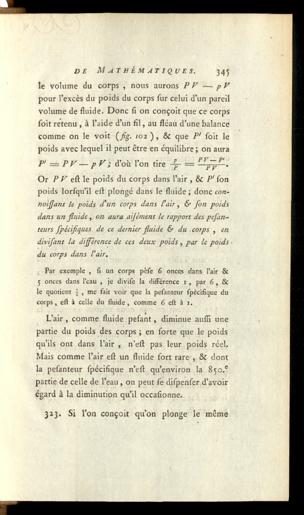 DE MATHÉMATIQUES. 345
le volume du corps , nous aurons PV — pV
pour l'excès du poids du corps sur celui d'un pareil
volume de fluide. Donc ſi on conçoit que ce corps
ſoit retenu , à l'aide d'un fil , au fléau d'une balance
comme on le voit (fig. 102) , & que P' ſoit le
poids avec lequel il peut être en équilibre ; on aura
P' = PV — pV ; d'où l'on tire p/P = PV — P'/PV .
Or PV eſt le poids du corps dans l'air , & P' ſon
poids lorſqu'il eſt plongé dans le fluide ; donc con-
noiſſant le poids d'un corps dans l'air , & ſon poids
dans un fluide , on aura aiſément le rapport des peſan-
teurs ſpécifiques de ce dernier fluide & du corps , en
diviſant la différence de ces deux poids , par le poids
du corps dans l'air.
Par exemple , ſi un corps pèſe 6 onces dans l'air &
5 onces dans l'eau , je diviſe la différence 1 , par 6 , &
le quotient 1/6 , me fait voir que la peſanteur ſpécifique du
corps , eſt à celle du fluide , comme 6 eſt à 1.
L'air , comme fluide peſant , diminue auſſi une
partie du poids des corps ; en ſorte que le poids
qu'ils ont dans l'air , n'eſt pas leur poids réel.
Mais comme l'air eſt un fluide fort rare , & dont
la peſanteur ſpécifique n'eſt qu'environ la 850.e
partie de celle de l'eau , on peut ſe diſpenſer d'avoir
égard à la diminution qu'il occaſionne.
323. Si l'on conçoit qu'on plonge le même